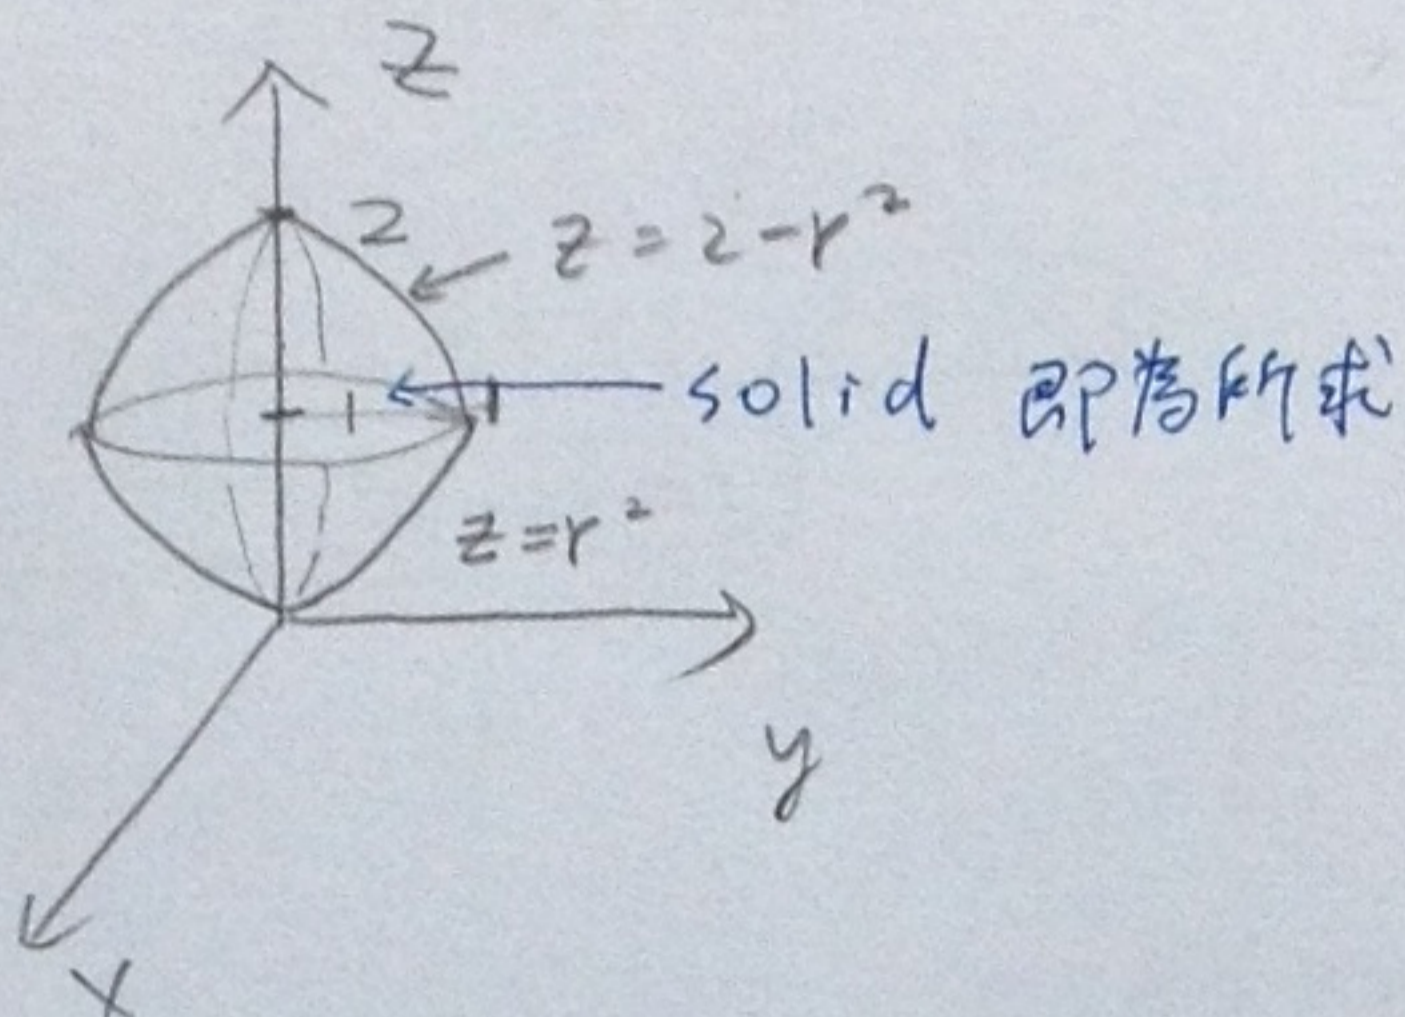 z
2
z = 2 - r²
1
1
solid 即為所求
z = r²
y
x